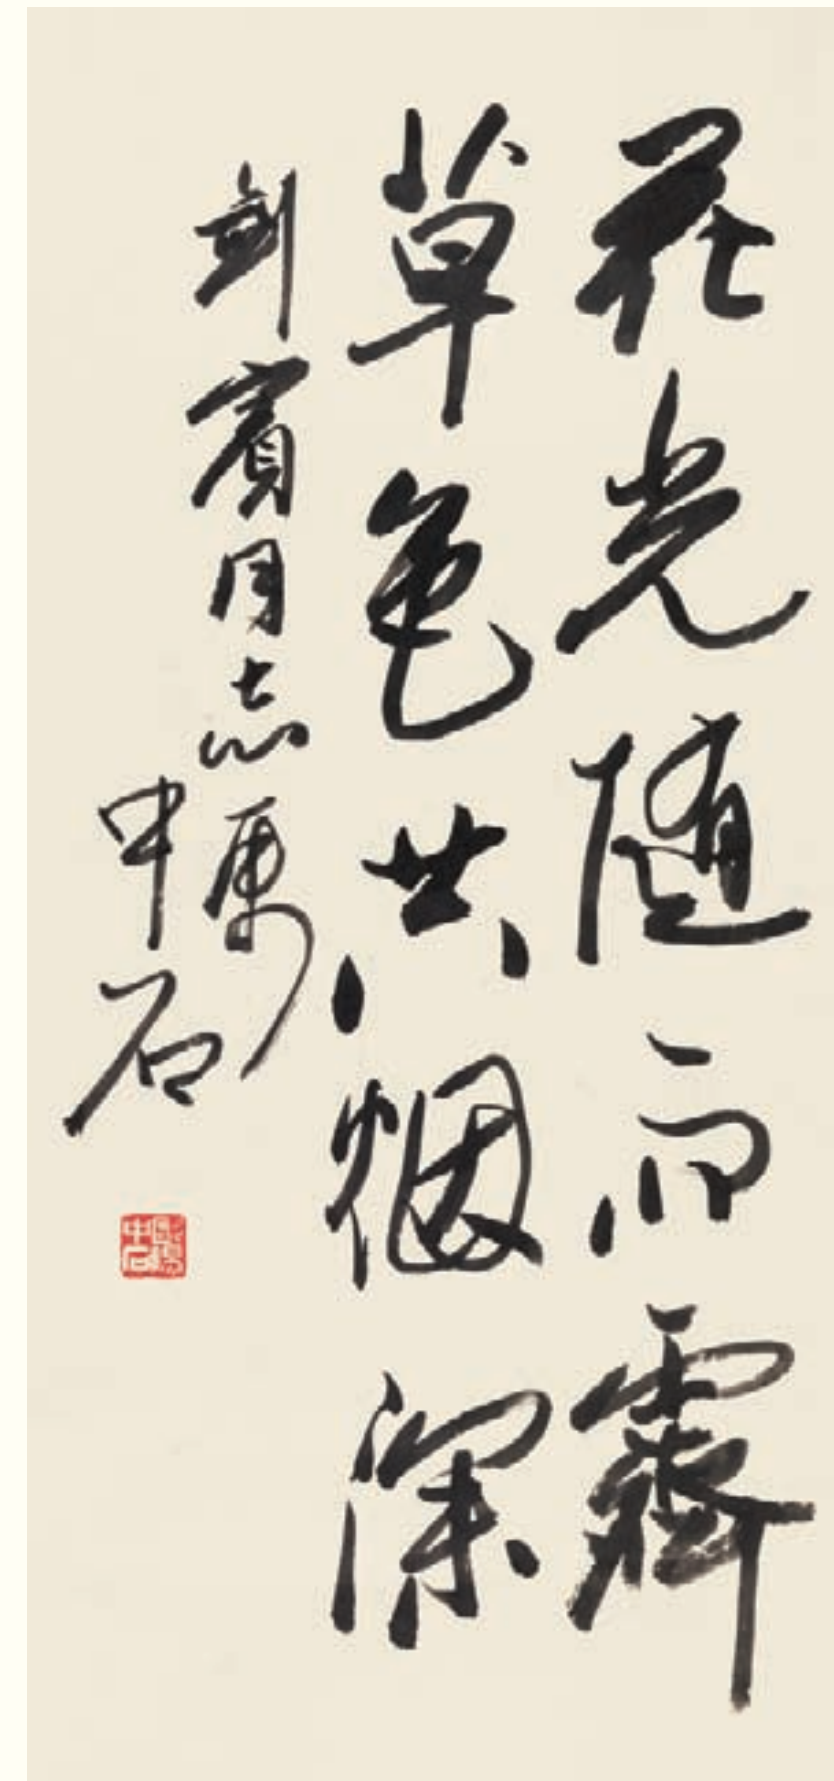 花光随雨霽
草色共烟深
劍賓同志属
中石
歐陽中石